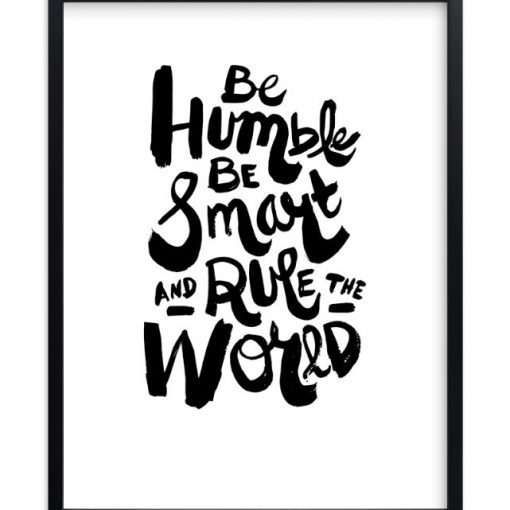 Be
Humble
BE
Smart
AND RULE THE
WORLD